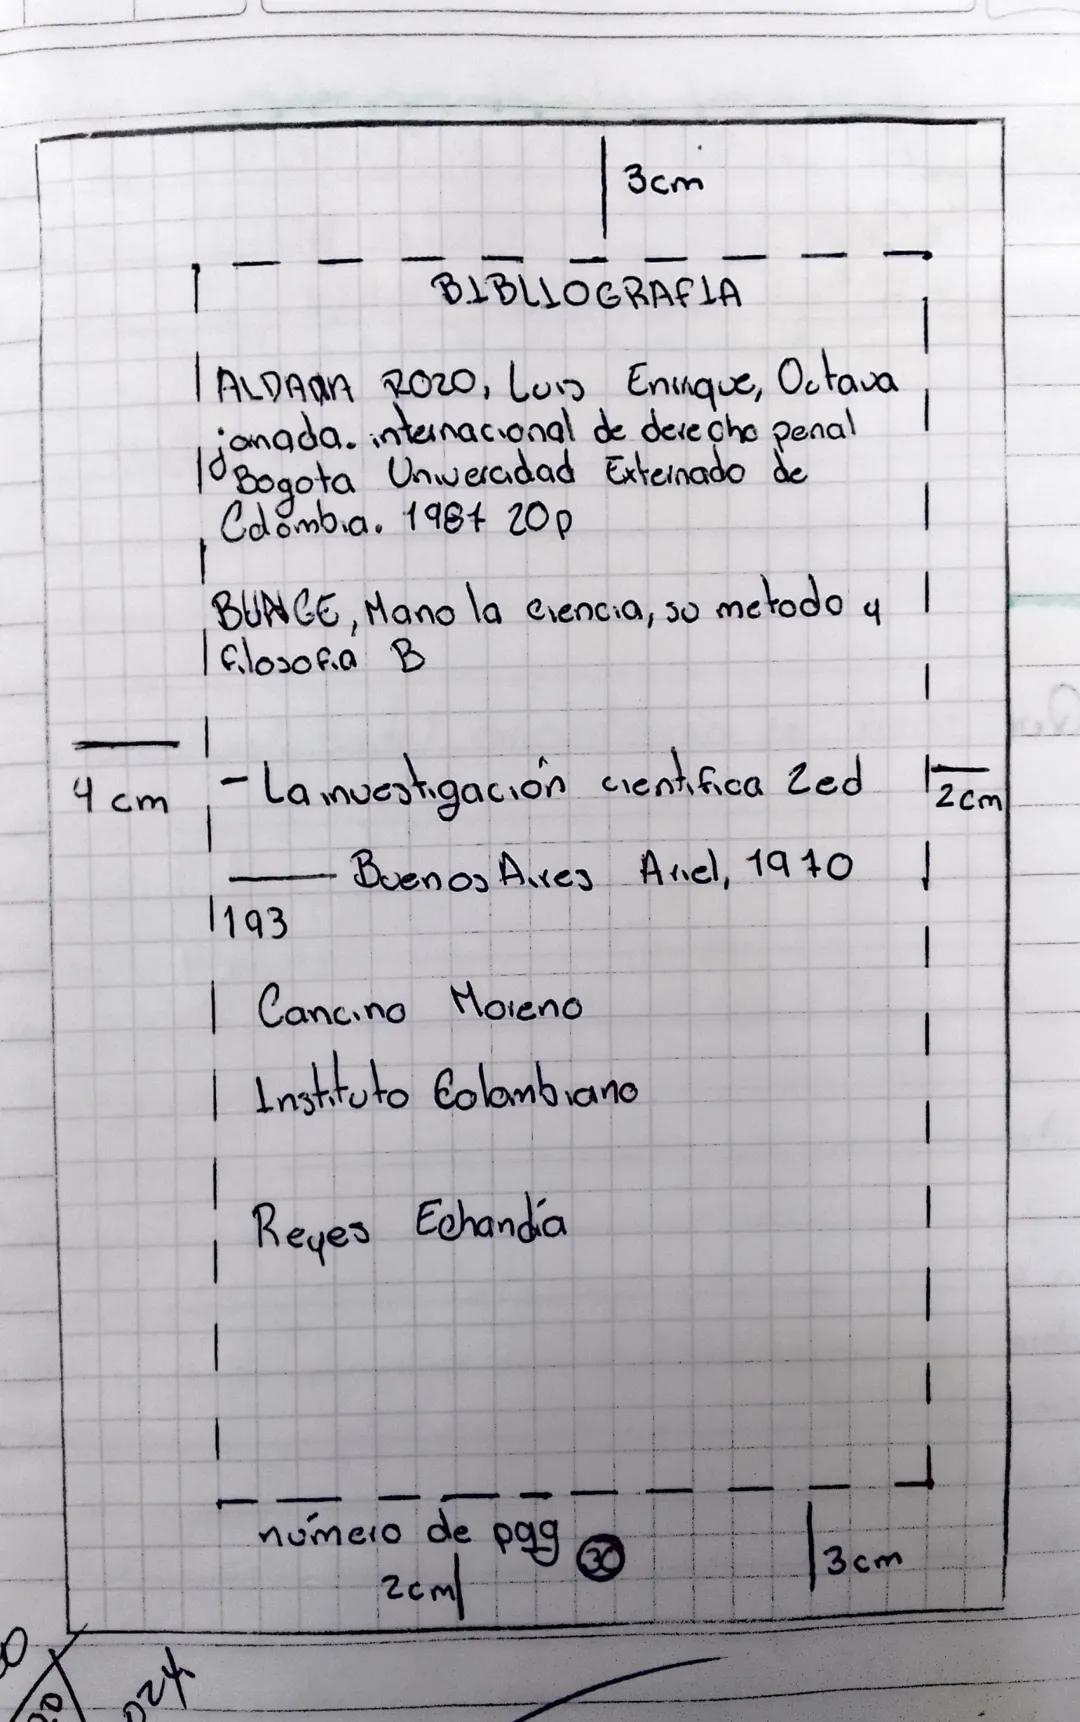 3cm
BIBLIOGRAFIA
ALDANA ROZO, Luis Enrique, Octava
jornada. internacional de derecho penal
Bogota Univercidad Externado de
Colombia. 1987 20p
BUNGE, Mario la ciencia, su metodo y
filosofia B
4 cm
- La investigación cientifica 2ed
2cm
—— Buenos Aires Ariel, 1970
193
Cancino Moreno
Instituto Colombiano
Reyes Echandía
número de pgg 30
2cm
3cm